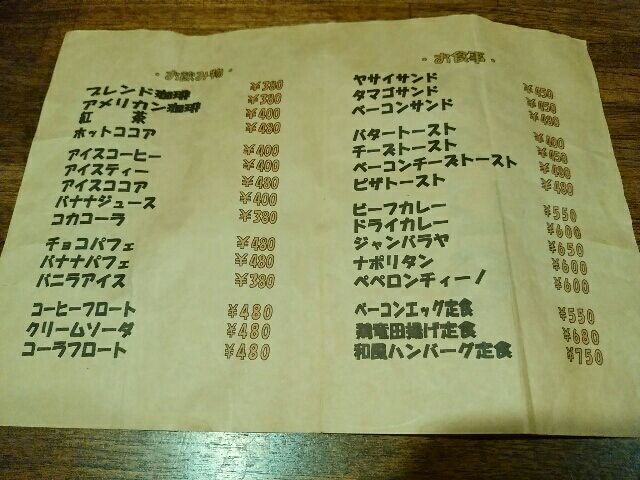 ・お飲み物・
ブレンド珈琲 ¥380
アメリカン珈琲 ¥380
紅　茶 ¥400
ホットココア ¥480
アイスコーヒー ¥400
アイスティー ¥400
アイスココア ¥480
バナナジュース ¥400
コカコーラ ¥380
チョコパフェ ¥480
バナナパフェ ¥480
バニラアイス ¥380
コーヒーフロート ¥480
クリームソーダ ¥480
コーラフロート ¥480
・お食事・
ヤサイサンド ¥450
タマゴサンド ¥450
ベーコンサンド ¥480
バタートースト ¥400
チーズトースト ¥450
ベーコンチーズトースト ¥480
ピザトースト ¥480
ビーフカレー ¥550
ドライカレー ¥600
ジャンバラヤ ¥650
ナポリタン ¥600
ペペロンチィーノ ¥600
ベーコンエッグ定食 ¥550
鶏竜田揚げ定食 ¥680
和風ハンバーグ定食 ¥750